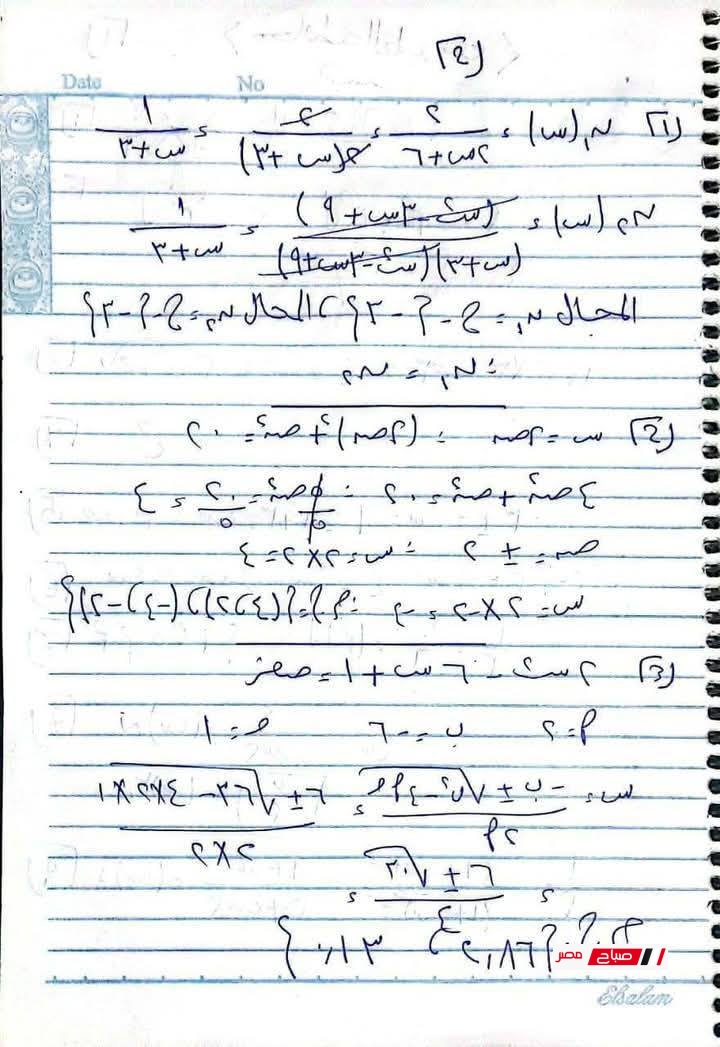 [2]
Date No
[1] ن₁(س) = ٢/(٢س+٦) = ٢/(٢(س+٣)) = ١/(س+٣)
ن₂(س) = (س²-٣س+٩)/((س+٣)(س²-٣س+٩)) = ١/(س+٣)
المجال ن₁ = ح-{-٣}، المجال ن₂ = ح-{-٣}
∴ ن₁ = ن₂
[2] س=٢ص ∴ (٢ص)²+ص²=٢٠
٤ص²+ص²=٢٠ ∴ ٥ص²/٥=٢٠/٥ = ٤
ص=±٢ ∴ س=٢×٢=٤
س=٢×-٢=-٤ ∴ م.ح={(٤،٢)،(-٤،-٢)}
[3] ٢س²-٦س+١=صفر
أ=٢ ب=-٦ ج=١
س= (-ب±√(ب²-٤أج))/٢أ = (٦±√(٣٦-٤×٢×١))/(٢×٢)
= (٦±√٢٠)/٤ =
م.ح={٢,٨٦، ١٣,} صباح مصر
Elsalam